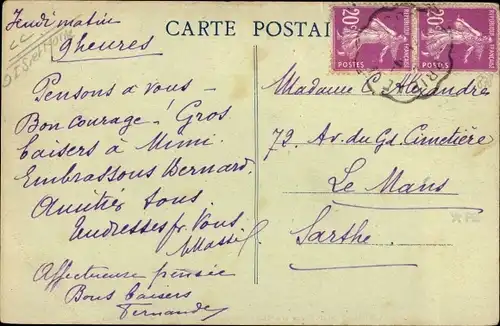 Jeudi matin
9 heures
CARTE POSTALE
20c
POSTES
20c
POSTES
Pensons à vous —
Bon courage! Gros
baisers à Mimi.
Embrassons Bernard.
Amitiés tous.
Tendresses pr Vous
Affectueuse pensée
Bons baisers
Fernande
Madame C. Alexandre
72, Av. du Gd. Cimetière
Le Mans
Sarthe.